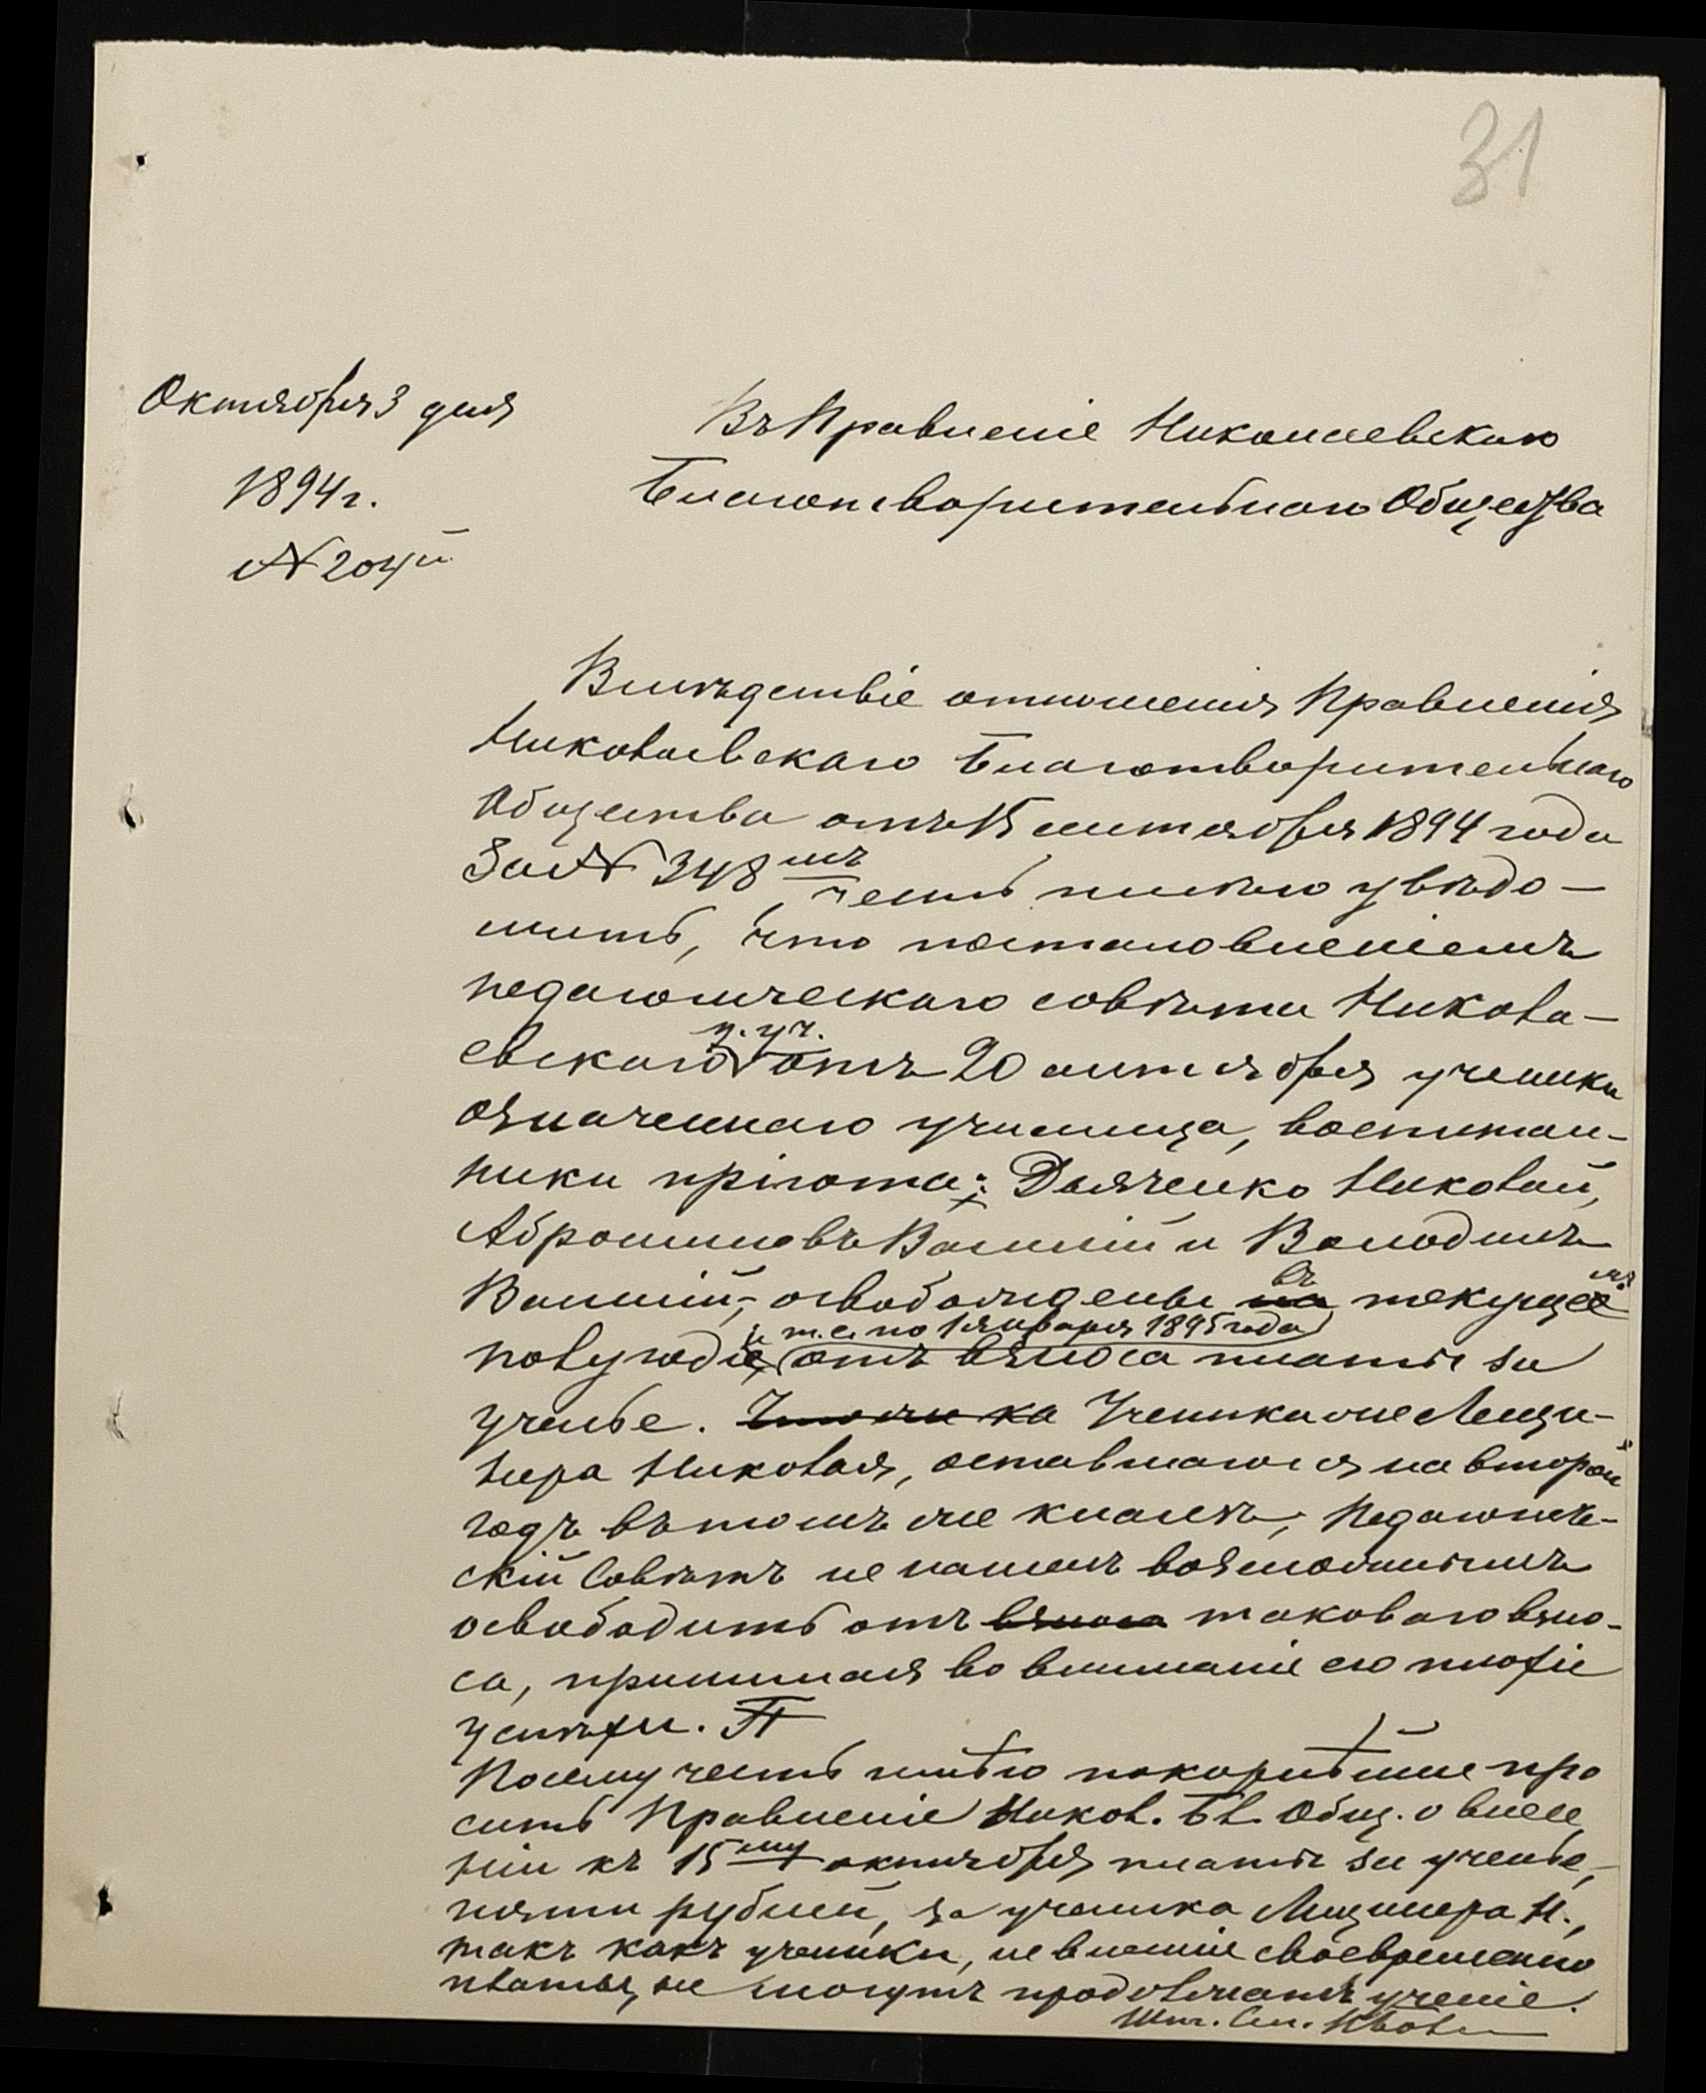 31
Октября 3 дня
1894 г.
№ 204й
Въ Правленіе Николаевскаго
Благотворительнаго Общества
Вслѣдствіе отношенія Правленія
Николаевскаго Благотворительнаго
Общества отъ 15 сентября 1894 года
За № 348мъ честь имѣю увѣдо-
мить, что постановленіемъ
педагогическаго совѣта Никола-
у. уч.
евскаго отъ 20 сентября ученики
означеннаго училища, воспитан-
ники пріюта: Дьяченко Николай,
Абросимовъ Василій и Володинъ
въ мъ
Василій, освобождены на текущее
и т. е. по 1 января 1895 года)
полугодіе (отъ взноса платы за
ученье. Ученика же Лещи-
нера Николая, оставшагося на второй
годъ въ томъ же классѣ, Педагогиче-
скій Совѣтъ не нашелъ возможнымъ
освободить отъ взноса таковаго взно-
са, принимая во вниманіе его плохіе
успѣхи. П
Посему честь имѣю покорнѣйше про
сить Правленіе Никол. Бл. Общ. о внесе
ніи къ 15му октября платы за ученье,
пяти рублей, за ученика Лещинера Н.,
такъ какъ ученики, не внесшіе своевременно
платы, не могутъ продолжать ученіе.
Шт. См.